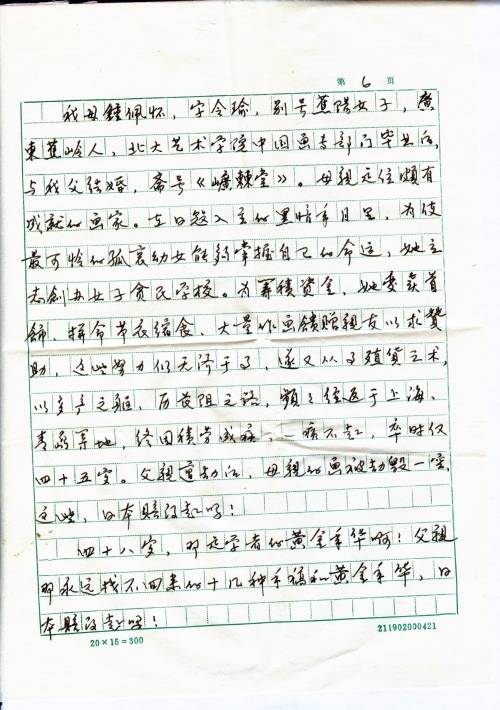 第 6 页
我母鍾佩怀，字令瑜，别号蕉陽女子，廣
東蕉岭人，北大艺术学院中国画专部门毕业后，
与我父结婚，斋号《嶗棘堂》。母親是位頗有
成就的画家。在日寇入主的黑暗年月里，为使
最可怜的孤哀幼女能夠掌握自己的命运，她立
志創办女子贫民学校。为筹積资金，她变卖首
飾，拼命节衣缩食、大量作画馈赠親友以求贊
助，这些努力仍无济于事，遂又从事殖货之术，
以多产之躯，历艰阻之路，频々往返于上海、
青島等地，终因積劳成疾，一病不起，卒时仅
四十五岁。父親遭劫后，母親的画被劫毁一空，
这些，日本賠得起吗！
四十八岁，那是学者的黄金年华啊！父親
那永远找不回来的十几种手稿和黄金年华，日
本賠得起吗！
20×15=300
211902000421